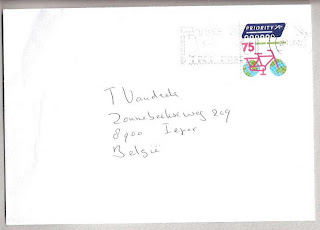 PRIORITY
75
T Vandede
Zonnebeekseweg 209
8900 Ieper
België